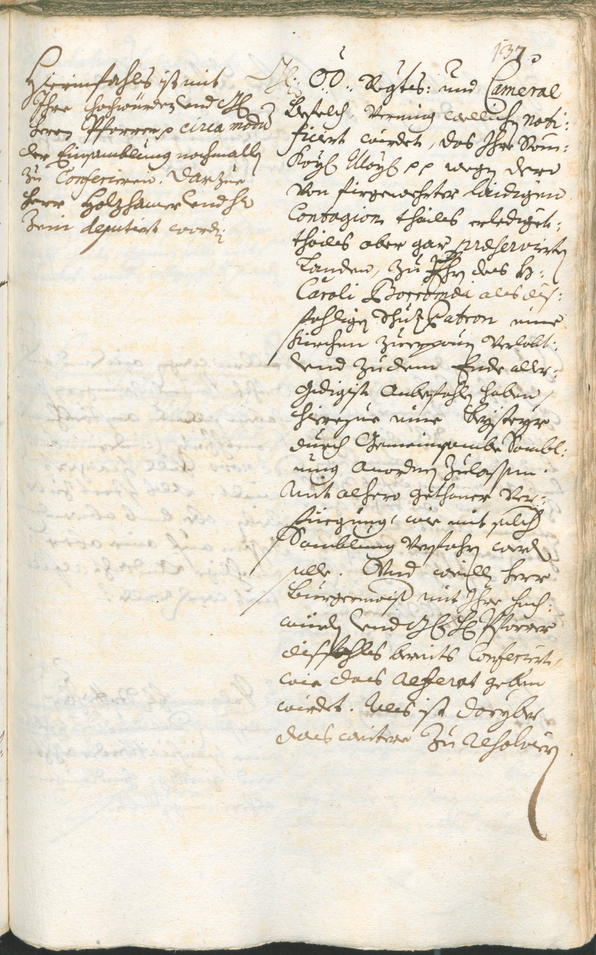 137.
Hierinfahls ist mit
Ihro hochwürden und H:
herrn Pfarrern circa modum
der Einsamblung nochmallen
zu Conferiren. Darzue
herr Holzhamer und H:
Zein deputirt word:
OÖ: Rgts: und Cameral
Befelch Vermög welches noti:
ficirt würdet, das Ihro Röm:
Kays: May: pp wegen dero
von fürgewester laidigen
Contagion thails erledigt:
thails aber gar praeservirten
Landen, zu Ehrn des H:
Caroli Borromei als dis:
fahligen Schuz Patron eine
Kirchen zuerpauen verlobt:
und zu dem Ende aller:
gdigist anbefohlen haben,
hierzue eine Beysteyr
durch Gemeinsambe Sambl:
ung anordnen zulassen.
mit alhero gethaner Ver:
füegung, wie mit solch
Samblung verfahrn werden
solle. Und weillen herr
Burgermaister mit Ihro hoch:
würden und H: H: Pfarrer
disfahls bereits Conferirt,
wie das Referat geben
würdet. Alls ist darüber
das weitere zu resolvirn